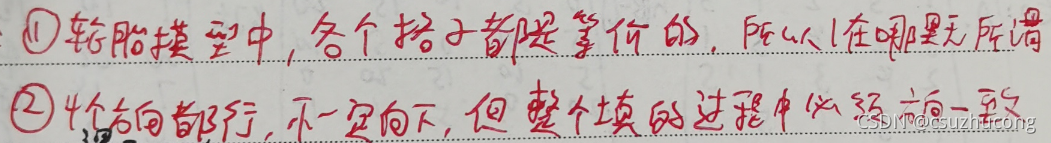 ①轮胎模型中,各个格子都是等价的,所以1在哪里无所谓
②4个方向都行,不一定向下,但整个填的过程中必须方向一致
CSDN @csuzhucong